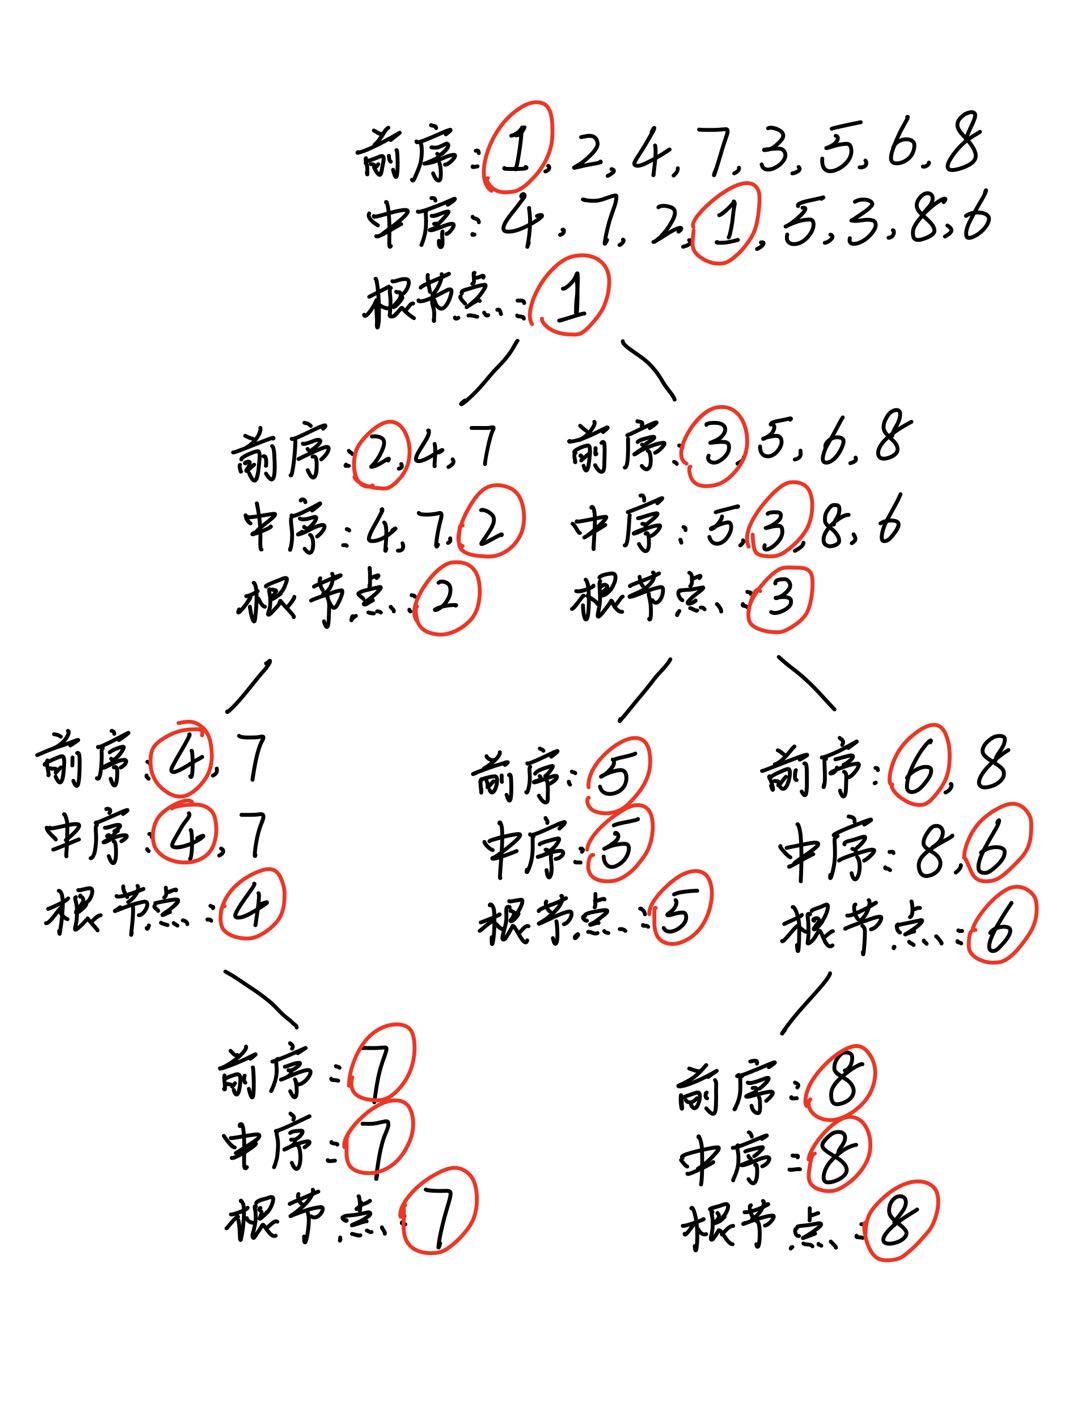 前序:1,2,4,7,3,5,6,8
中序:4,7,2,1,5,3,8,6
根节点:1
前序:2,4,7
中序:4,7,2
根节点:2
前序:3,5,6,8
中序:5,3,8,6
根节点:3
前序:4,7
中序:4,7
根节点:4
前序:5
中序:5
根节点:5
前序:6,8
中序:8,6
根节点:6
前序:7
中序:7
根节点:7
前序:8
中序:8
根节点:8